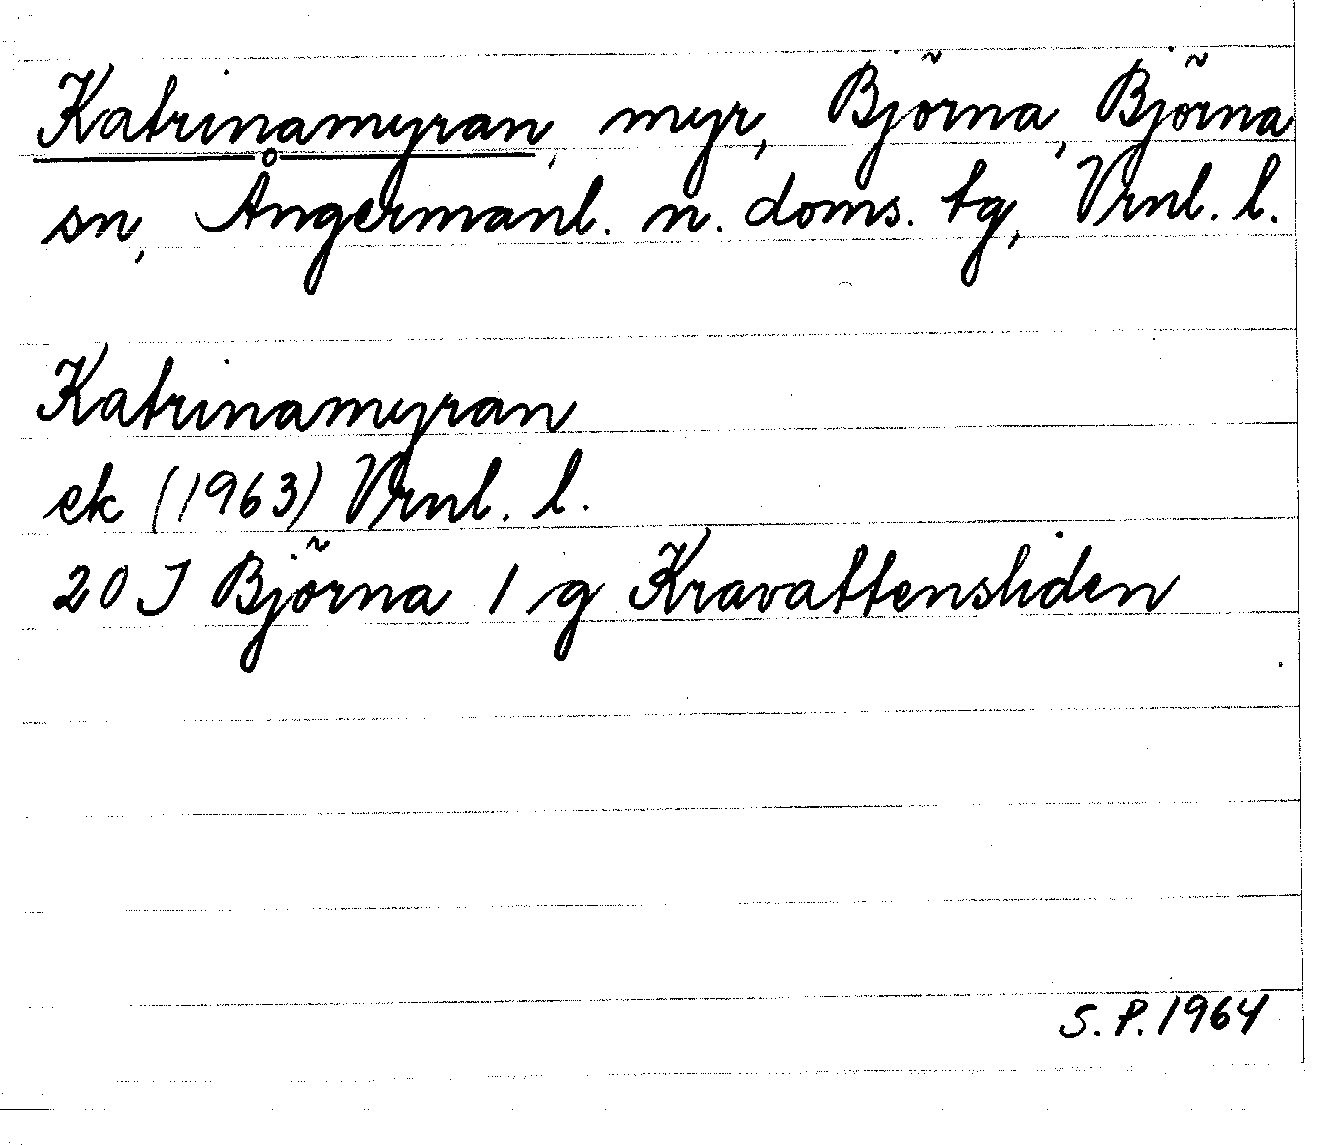 Katrinamyran, myr, Björna, Björna
sn, Ångermanl. n. doms. tg, Vrnl. l.
Katrinamyran
ek (1963) Vrnl. l.
20 J Björna 1 g Kravattensliden
S. P. 1964